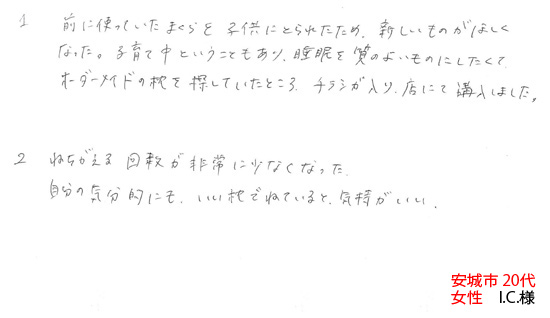 1 前に使っていたまくらを子供にとられたため、新しいものがほしく
なった。子育て中ということもあり、睡眠を質のよいものにしたくて、
オーダーメイドの枕を探していたところ、チラシが入り、店にて購入しました。
2 ねちがえる回数が非常に少なくなった。
自分の気分的にも、いい枕でねていると、気持がいい。
安城市 20代
女性 I.C.様